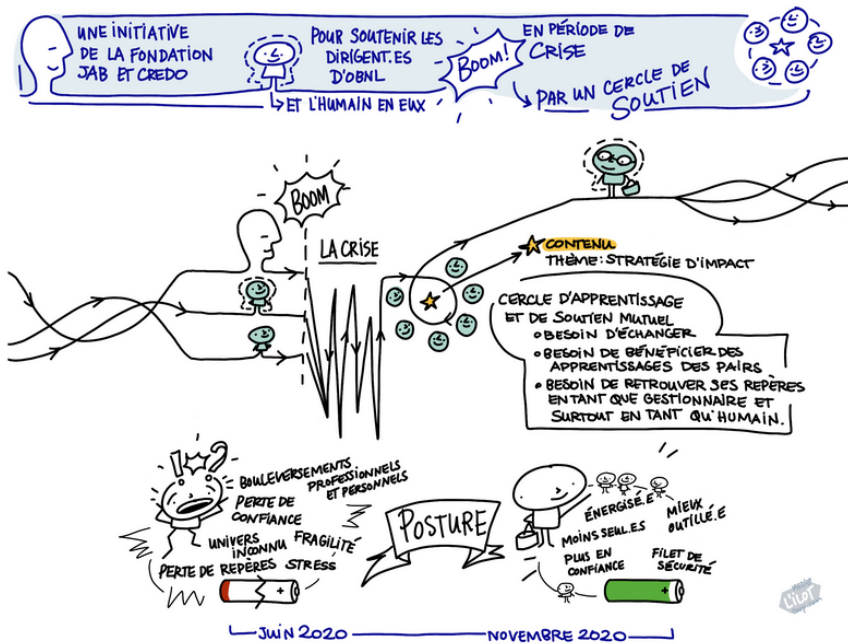 UNE INITIATIVE
DE LA FONDATION
JAB ET CREDO
POUR SOUTENIR LES
DIRIGENT.ES
D'OBNL
ET L'HUMAIN EN EUX
BOOM!
EN PÉRIODE DE
CRISE
PAR UN CERCLE DE
SOUTIEN
BOOM
LA CRISE
CONTENU
THÈME: STRATÉGIE D'IMPACT
CERCLE D'APPRENTISSAGE
ET DE SOUTIEN MUTUEL
• BESOIN D'ÉCHANGER
• BESOIN DE BÉNÉFICIER DES
APPRENTISSAGES DES PAIRS
• BESOIN DE RETROUVER SES REPÈRES
EN TANT QUE GESTIONNAIRE ET
SURTOUT EN TANT QU'HUMAIN.
!?
BOULEVERSEMENTS
PROFESSIONNELS
ET PERSONNELS
PERTE DE
CONFIANCE
UNIVERS
INCONNU
FRAGILITÉ
PERTE DE REPÈRES
STRESS
+
POSTURE
ÉNERGISÉ.E
MIEUX
OUTILLÉ.E
MOINS SEUL.ES
PLUS EN
CONFIANCE
FILET DE
SÉCURITÉ
+
JUIN 2020
NOVEMBRE 2020
L'ILOT